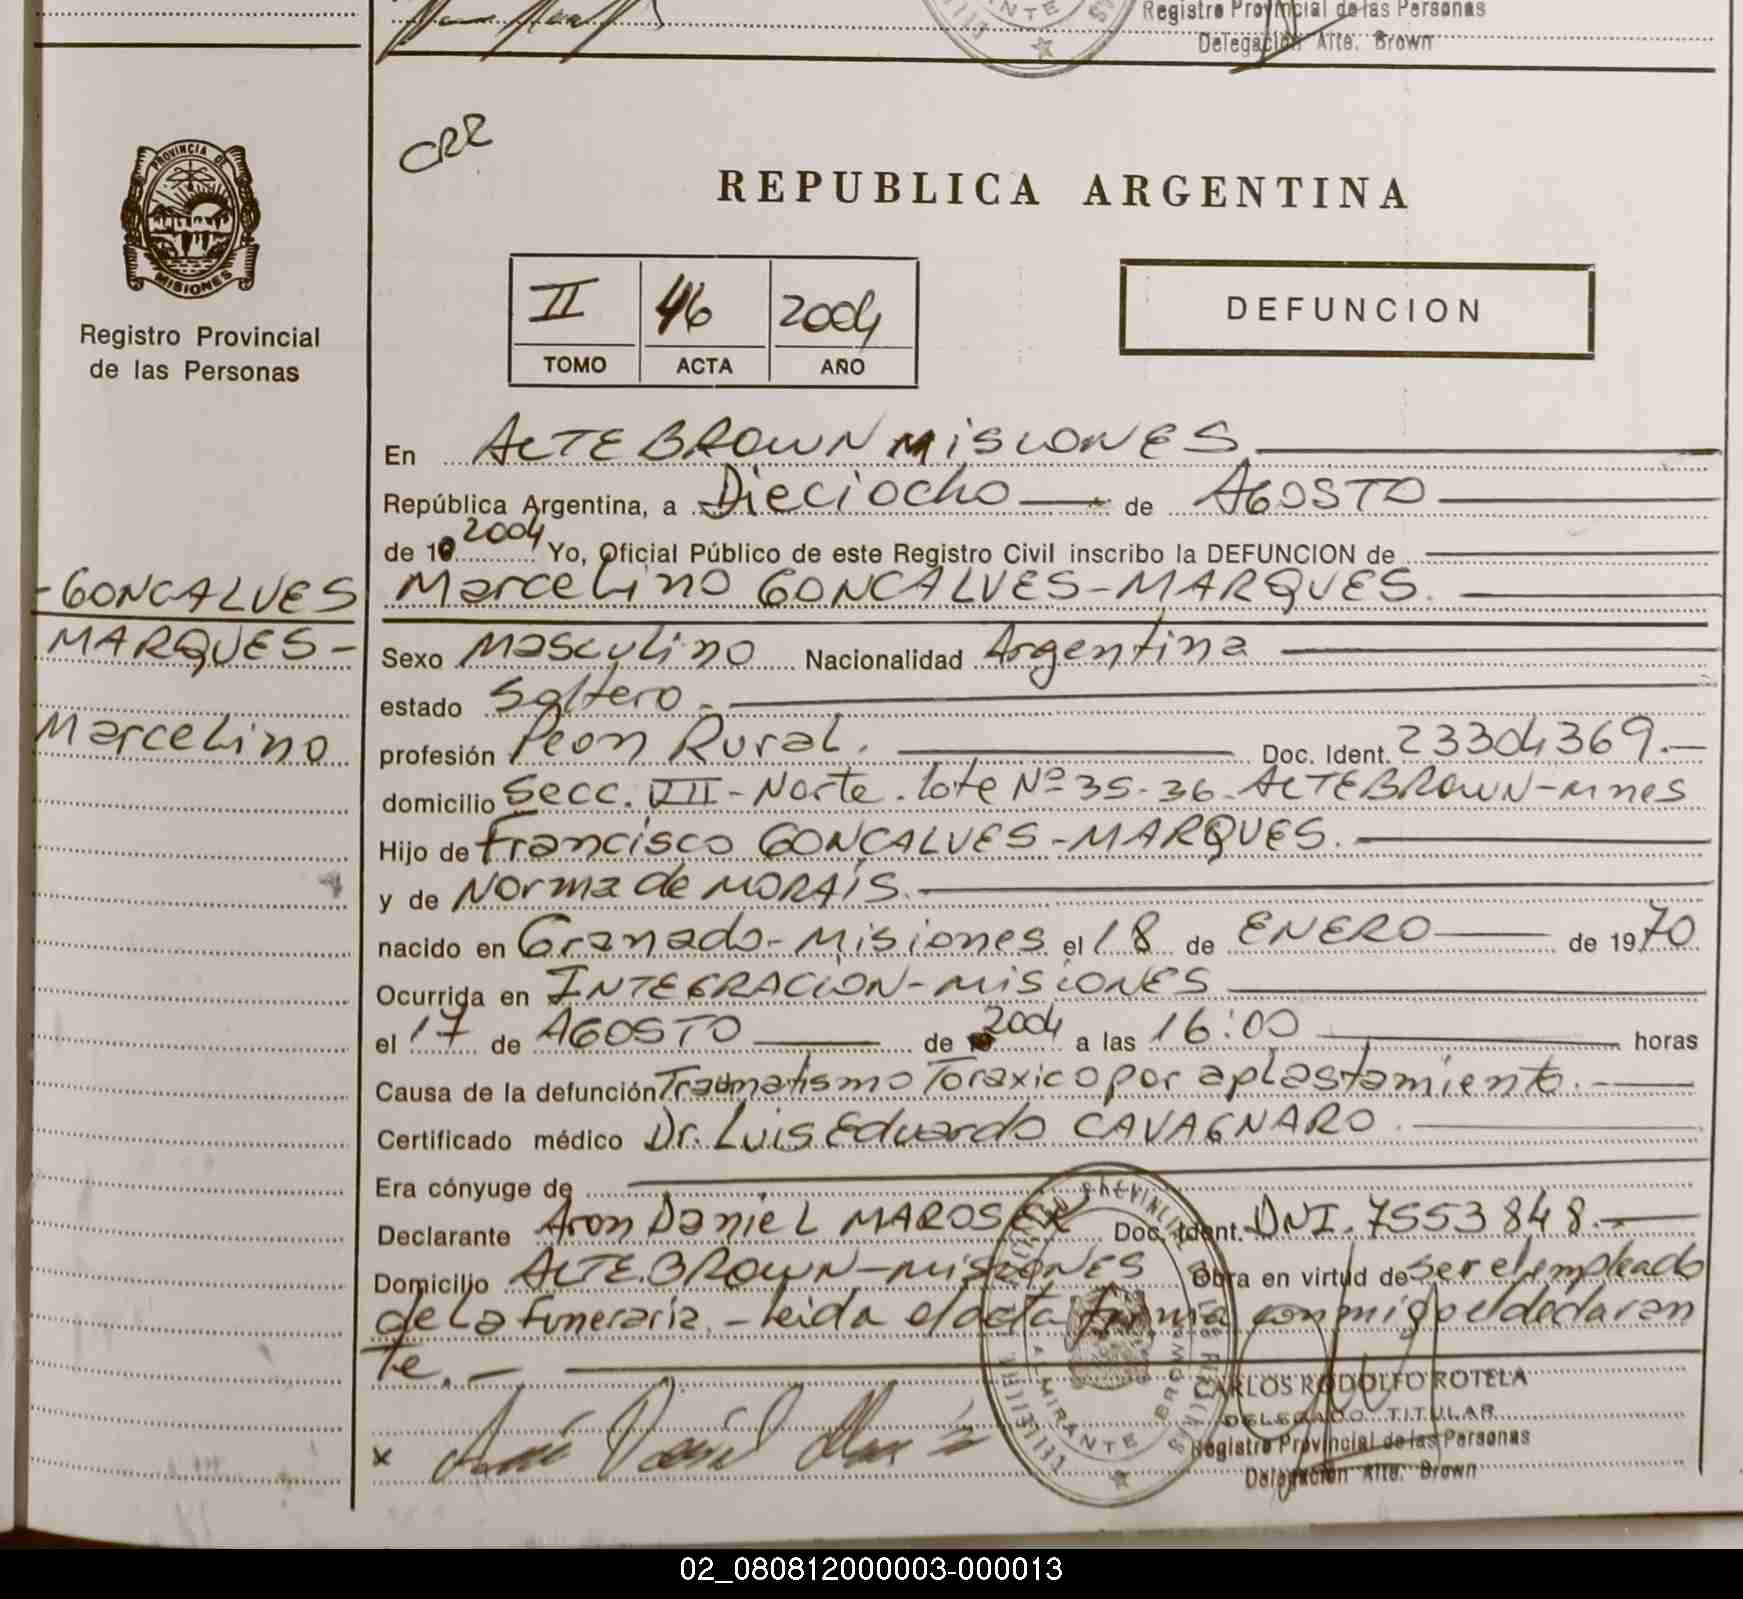 Registro Provincial de las Personas
Delegación Alte. Brown
CRR
PROVINCIA DE
MISIONES
Registro Provincial
de las Personas
REPUBLICA ARGENTINA
II 46 2004
TOMO ACTA AÑO
DEFUNCION
En ALTE BROWN MISIONES
República Argentina, a Dieciocho de AGOSTO
de 19 2004 Yo, Oficial Público de este Registro Civil inscribo la DEFUNCION de
-GONCALVES
MARQUES-
Marcelino
Marcelino GONCALVES-MARQUES.
Sexo Masculino Nacionalidad Argentina
estado Soltero.-
profesión Peon Rural. Doc. Ident. 23304369.-
domicilio Secc. VII - Norte. lote Nº 35-36. ALTE BROWN-Mnes
Hijo de Francisco GONÇALVES-MARQUES.
y de Norma de MORAIS.
nacido en Granado-Misiones el 18 de ENERO de 1970
Ocurrida en INTEGRACION-MISIONES
el 17 de AGOSTO de 2004 a las 16:00 horas
Causa de la defunción Traumatismo Toraxico por aplastamiento.-
Certificado médico Dr. Luis Eduardo CAVAGNARO.
Era cónyuge de
Declarante Aron Daniel MAROSEK Doc. Ident. DNI. 7553848.-
Domicilio ALTE.BROWN-MISIONES Obra en virtud de ser el empleado
de La Funeraria.- leida el acta firma conmigo el declaran
te.-
ALMIRANTE BROWN
CARLOS RODOLFO ROTELA
DELEGADO TITULAR
Registro Provincial de las Personas
Delegación Alte. Brown
x
02_080812000003-000013